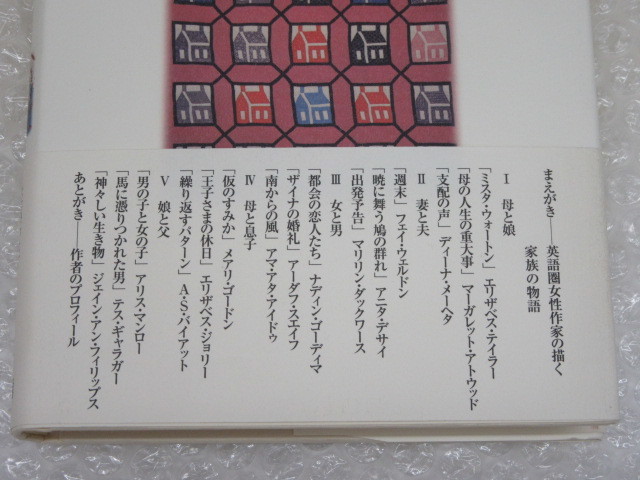 まえがき――英語圏女性作家の描く
家族の物語
Ⅰ 母と娘
「ミスタ・ウォートン」エリザベス・テイラー
「母の人生の重大事」マーガレット・アトウッド
「支配の声」ディーナ・メーヘタ
Ⅱ 妻と夫
「週末」フェイ・ウェルドン
「暁に舞う鳩の群れ」アニタ・デサイ
「出発予告」マリリン・ダックワース
Ⅲ 女と男
「都会の恋人たち」ナディン・ゴーディマ
「ザイナの婚礼」アーダフ・スエイフ
「南からの風」アマ・アタ・アイドゥ
Ⅳ 母と息子
「仮のすみか」メアリ・ゴードン
「王子さまの休日」エリザベス・ジョリー
「繰り返すパターン」A・S・バイアット
Ⅴ 娘と父
「男の子と女の子」アリス・マンロー
「馬に憑りつかれた男」テス・ギャラガー
「神々しい生き物」ジェイン・アン・フィリップス
あとがき――作者のプロフィール